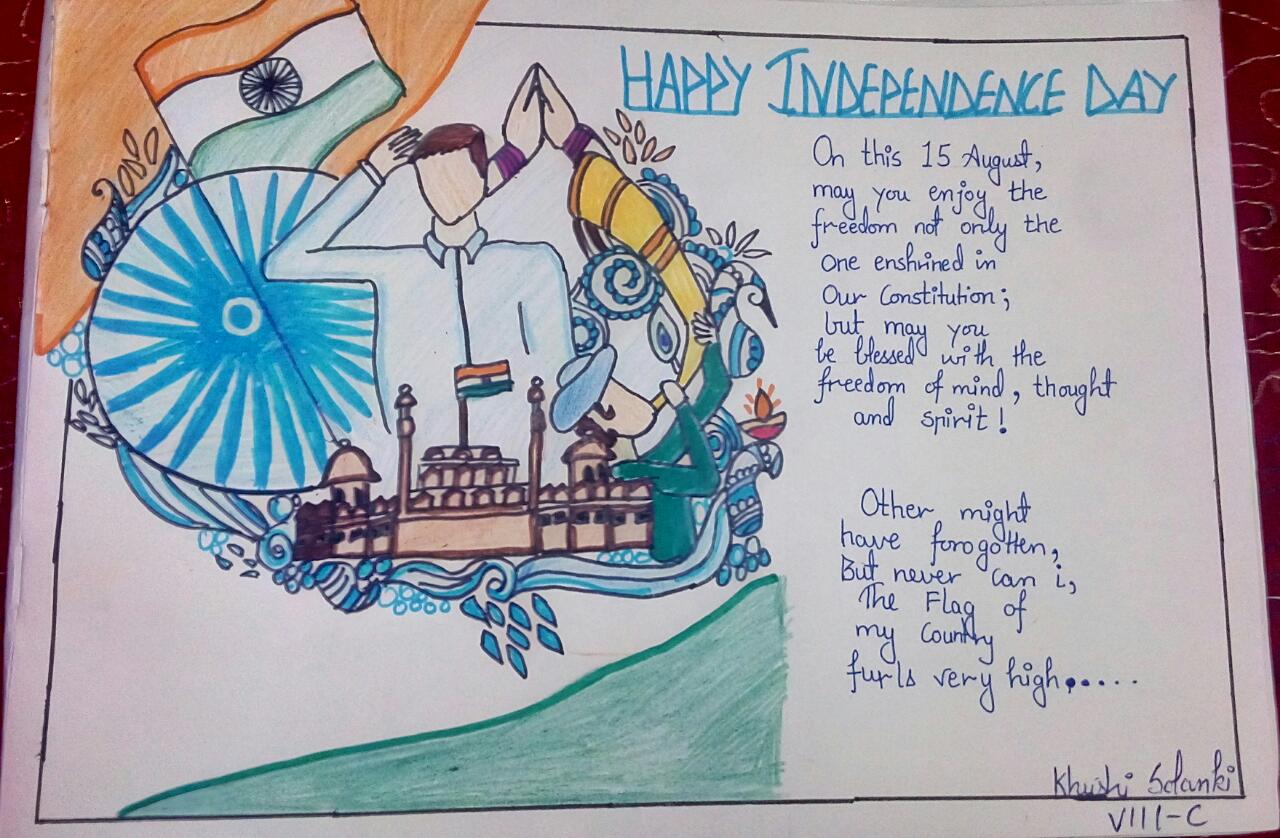 HAPPY INDEPENDENCE DAY
On this 15 August,
may you enjoy the
freedom not only the
one enshrined in
Our Constitution;
but may you
be blessed with the
freedom of mind, thought
and spirit!
Other might
have forogotten,
But never can i,
The Flag of
my Country
furls very high,.....
Khushi Solanki
VIII-C